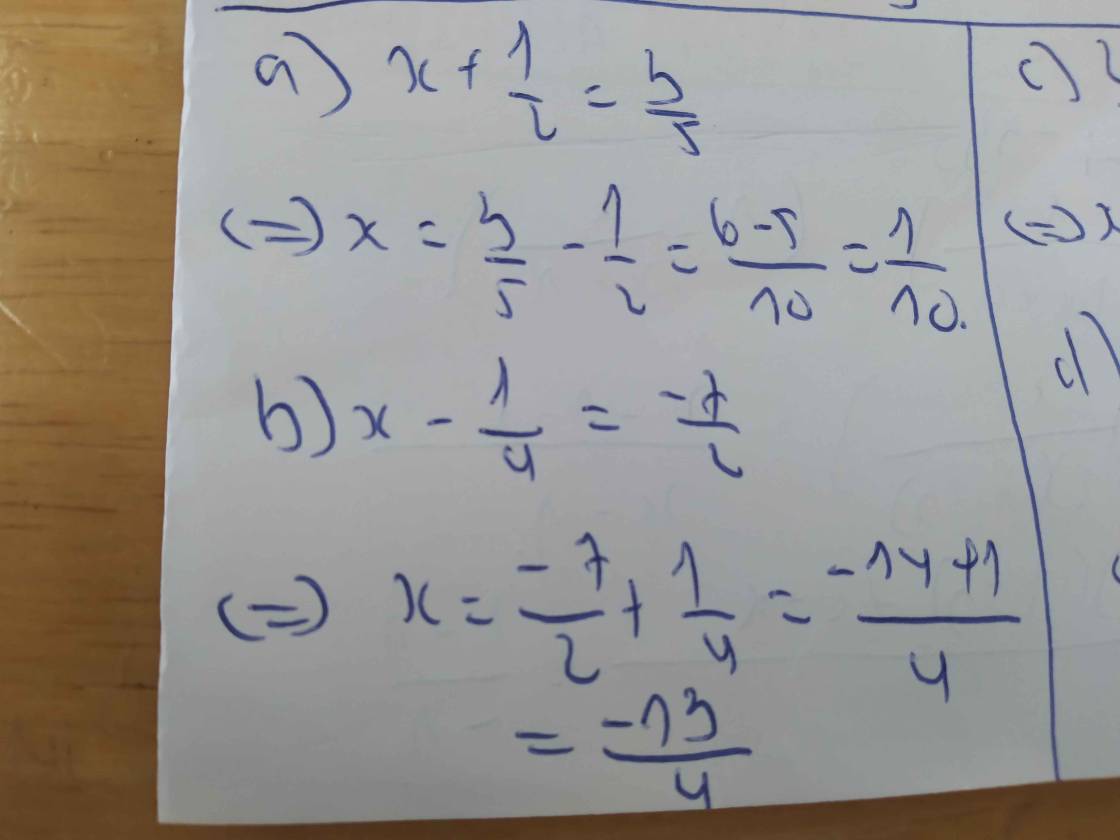 a) x + 1/2 = 3/5
(=) x = 3/5 - 1/2 = 6-5/10 = 1/10.
b) x - 1/4 = -7/2
(=) x = -7/2 + 1/4 = -14+1/4
= -13/4
c)
(=) x
d)